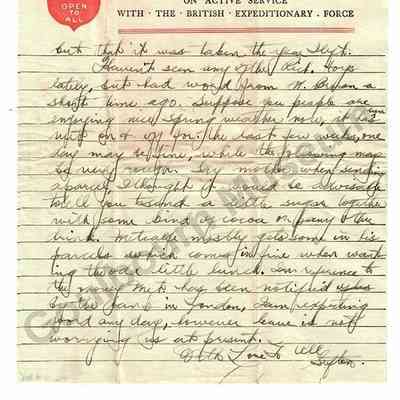 OPEN
TO
ALL
ON ACTIVE SERVICE
WITH · THE · BRITISH · EXPEDITIONARY · FORCE
but that it was taken the year
Haven't seen any of the Rich. boys
lately, but had word from W. a
short time ago. Suppose you people are
enjoying nice Spring weather now, it has
been on & off for the last few weeks, one
day may be fine, while the following may
be very rough. Say mother when sending
a parcel, I thought it would be advisable
to tell you to send a little sugar together
with some kind of cocoa or
mostly gets some in his
parcels which comes in fine when want
ing to a little lunch. In reference to
the money has been notified
by the bank in London, I am expecting
word any day, however leave is not
worrying us at present.
With Love to All